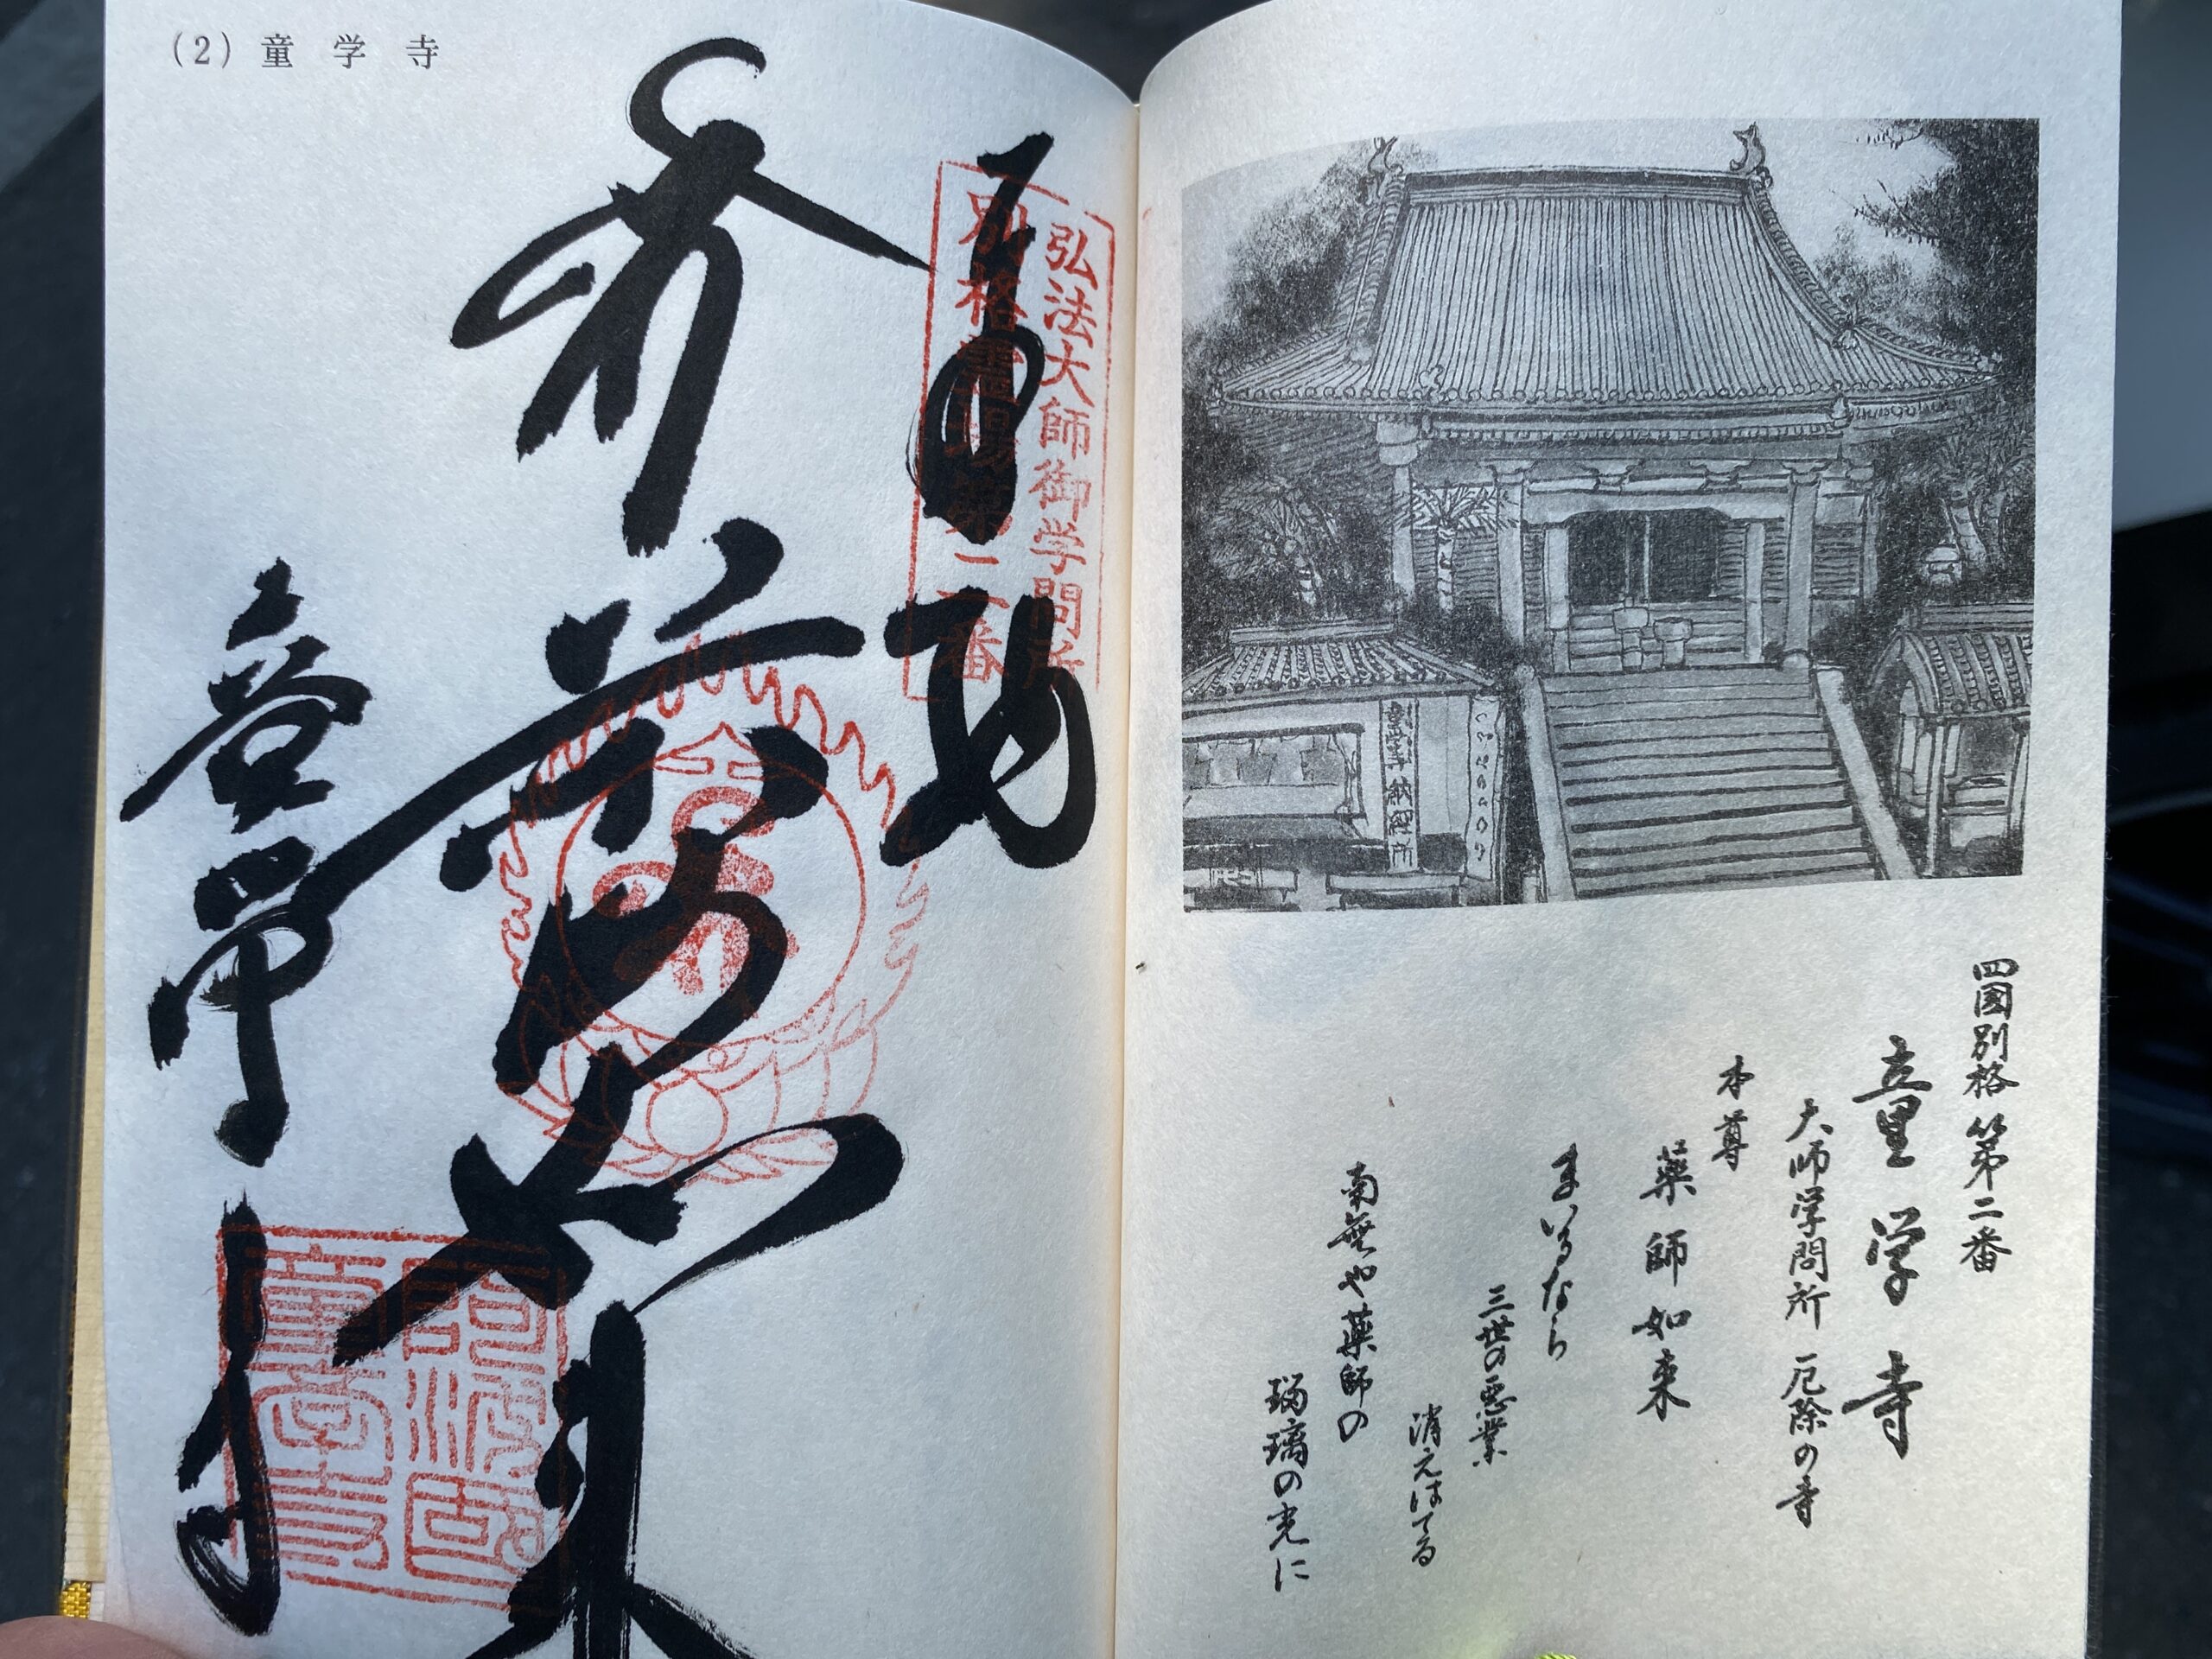 四國別格 第二番
童学寺
大師学問所 厄除の寺
本尊
薬師如来
まいるなら
三世の悪業
消えはてる
南無や薬師の
瑠璃の光に
童学寺 納経所
(2) 童 学 寺
弘法大師御学問所
別格霊場第二番
奉納
薬師如来
童学寺
阿波国
童学寺